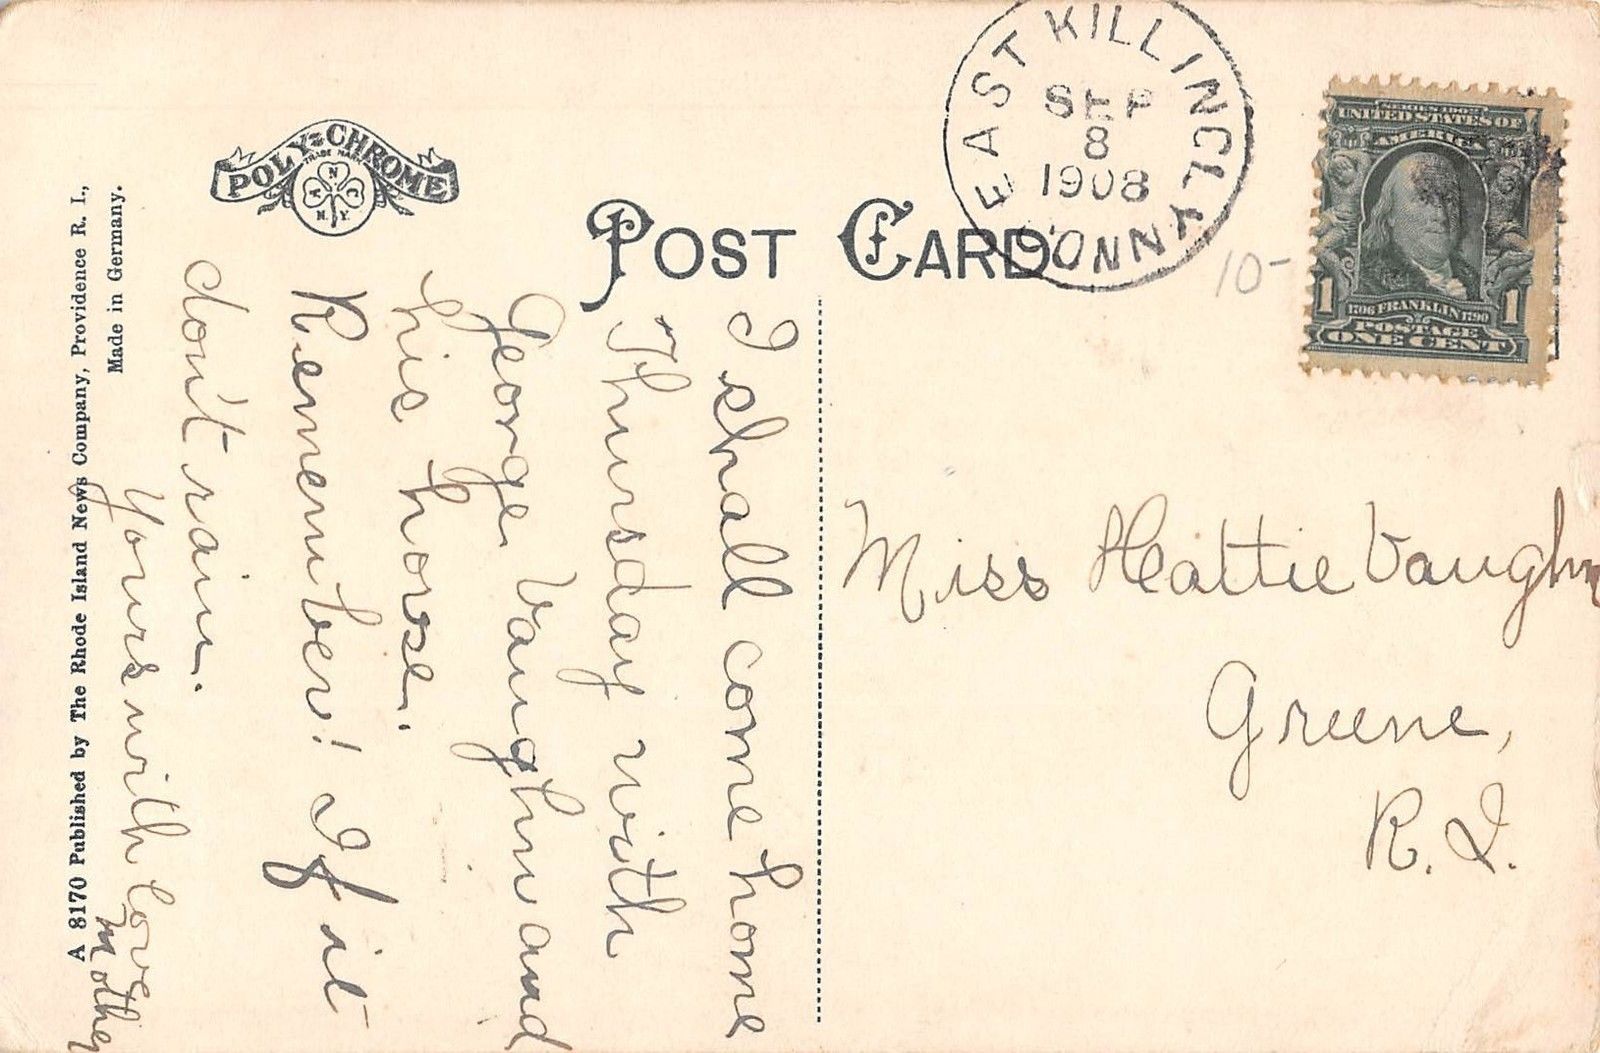 POLY-CHROME
TRADE MARK
A N C
N. Y.
POST CARD
EAST KILLINGLY
SEP
8
1908
CONN.
10-
SERIES 1902
UNITED STATES OF
AMERICA
1706 FRANKLIN 1790
1 1
POSTAGE
ONE CENT
A 8170 Published by The Rhode Island News Company, Providence R. I.,
Made in Germany.
I shall come home
Thursday with
George Vaughn and
his horse.
Remember! If it
don't rain.
Yours with love
Mother
Miss Hattie Vaughn
Greene,
R. I.